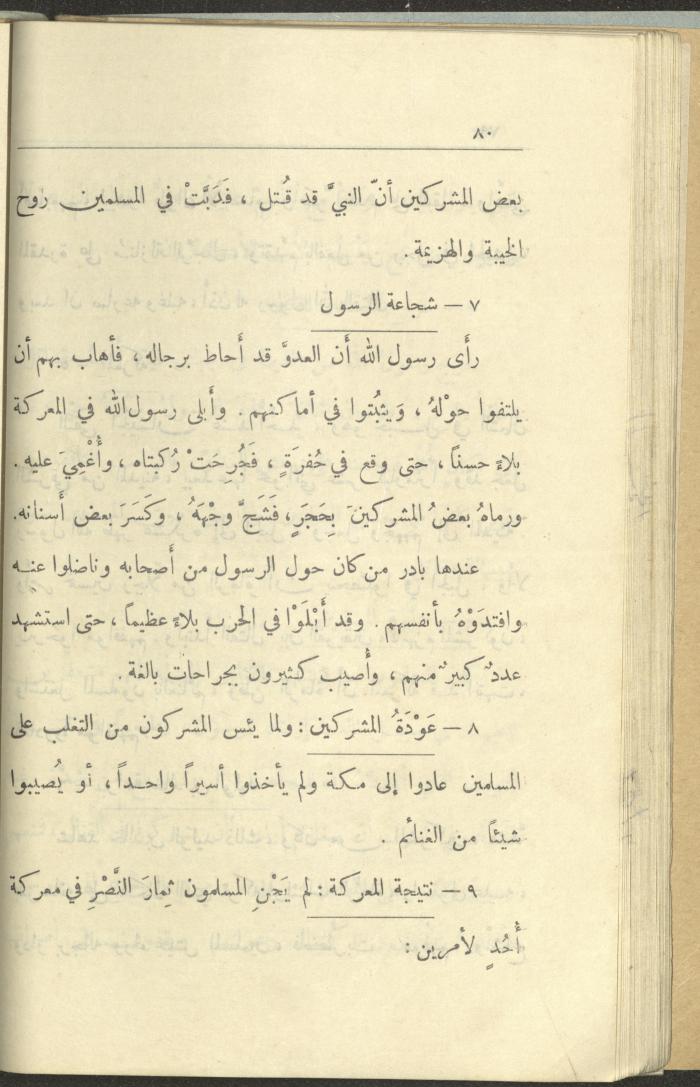 ٨٠
بعض المشركين أنّ النبيَّ قد قُتل ، فَدَبَّتْ في المسلمين روح
الخيبة والهزيمة .
٧ – شجاعة الرسول
رأَى رسول الله أَن العدوَّ قد أَحاط برجاله ، فأهاب بهم أن
يلتفوا حوْلهُ ، وَيثبُتوا في أماكنهم . وأَبلى رسول الله في المعركة
بلاءً حسناً ، حتى وقع في حُفرَةٍ ، فَجُرِحَتْ رُكبتاه ، وأُغْمِيَ عليه .
ورماهُ بعضُ المشركينَ بِحَجَرٍ ، فَشَجَّ وجْهَهُ ، وكَسَرَ بعض أَسنانه.
عندها بادر من كان حول الرسول من أَصحابه وناضلوا عنه
وافتدَوْهُ بأنفسهم . وقد أَبْلَوْا في الحرب بلاءً عظيماً ، حتى استشهد
عددٌ كبيرٌ منهم ، وأُصيب كثيرون بجراحات بالغة .
٨ – عَوْدَةُ المشركين : ولما يئس المشركون من التغلب على
المسلمين عادوا إلى مكة ولم يأخذوا أسيراً واحداً ، أو يُصيبوا
شيئاً من الغنائم .
٩ – نتيجة المعركة : لم يَجْنِ المسلمون ثِمارَ النَّصْرِ في معركة
أُحُدٍ لأمرين :